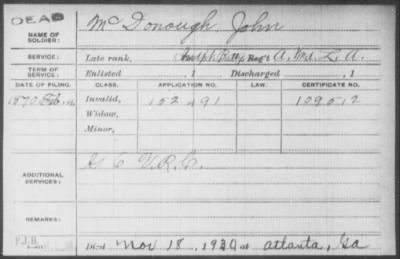 DEAD
NAME OF SOLDIER: McDonough, John
SERVICE: Late rank, Batty Reg't A, Md. L. A.
TERM OF SERVICE: Enlisted , 1 Discharged , 1
DATE OF FILING. CLASS. APPLICATION NO. LAW. CERTIFICATE NO.
1870 Feb. Invalid, 152 491 109512
Widow,
Minor,
ADDITIONAL SERVICES: G C V.R.C.
REMARKS:
Died Nov 18, 1920 at Atlanta, Ga